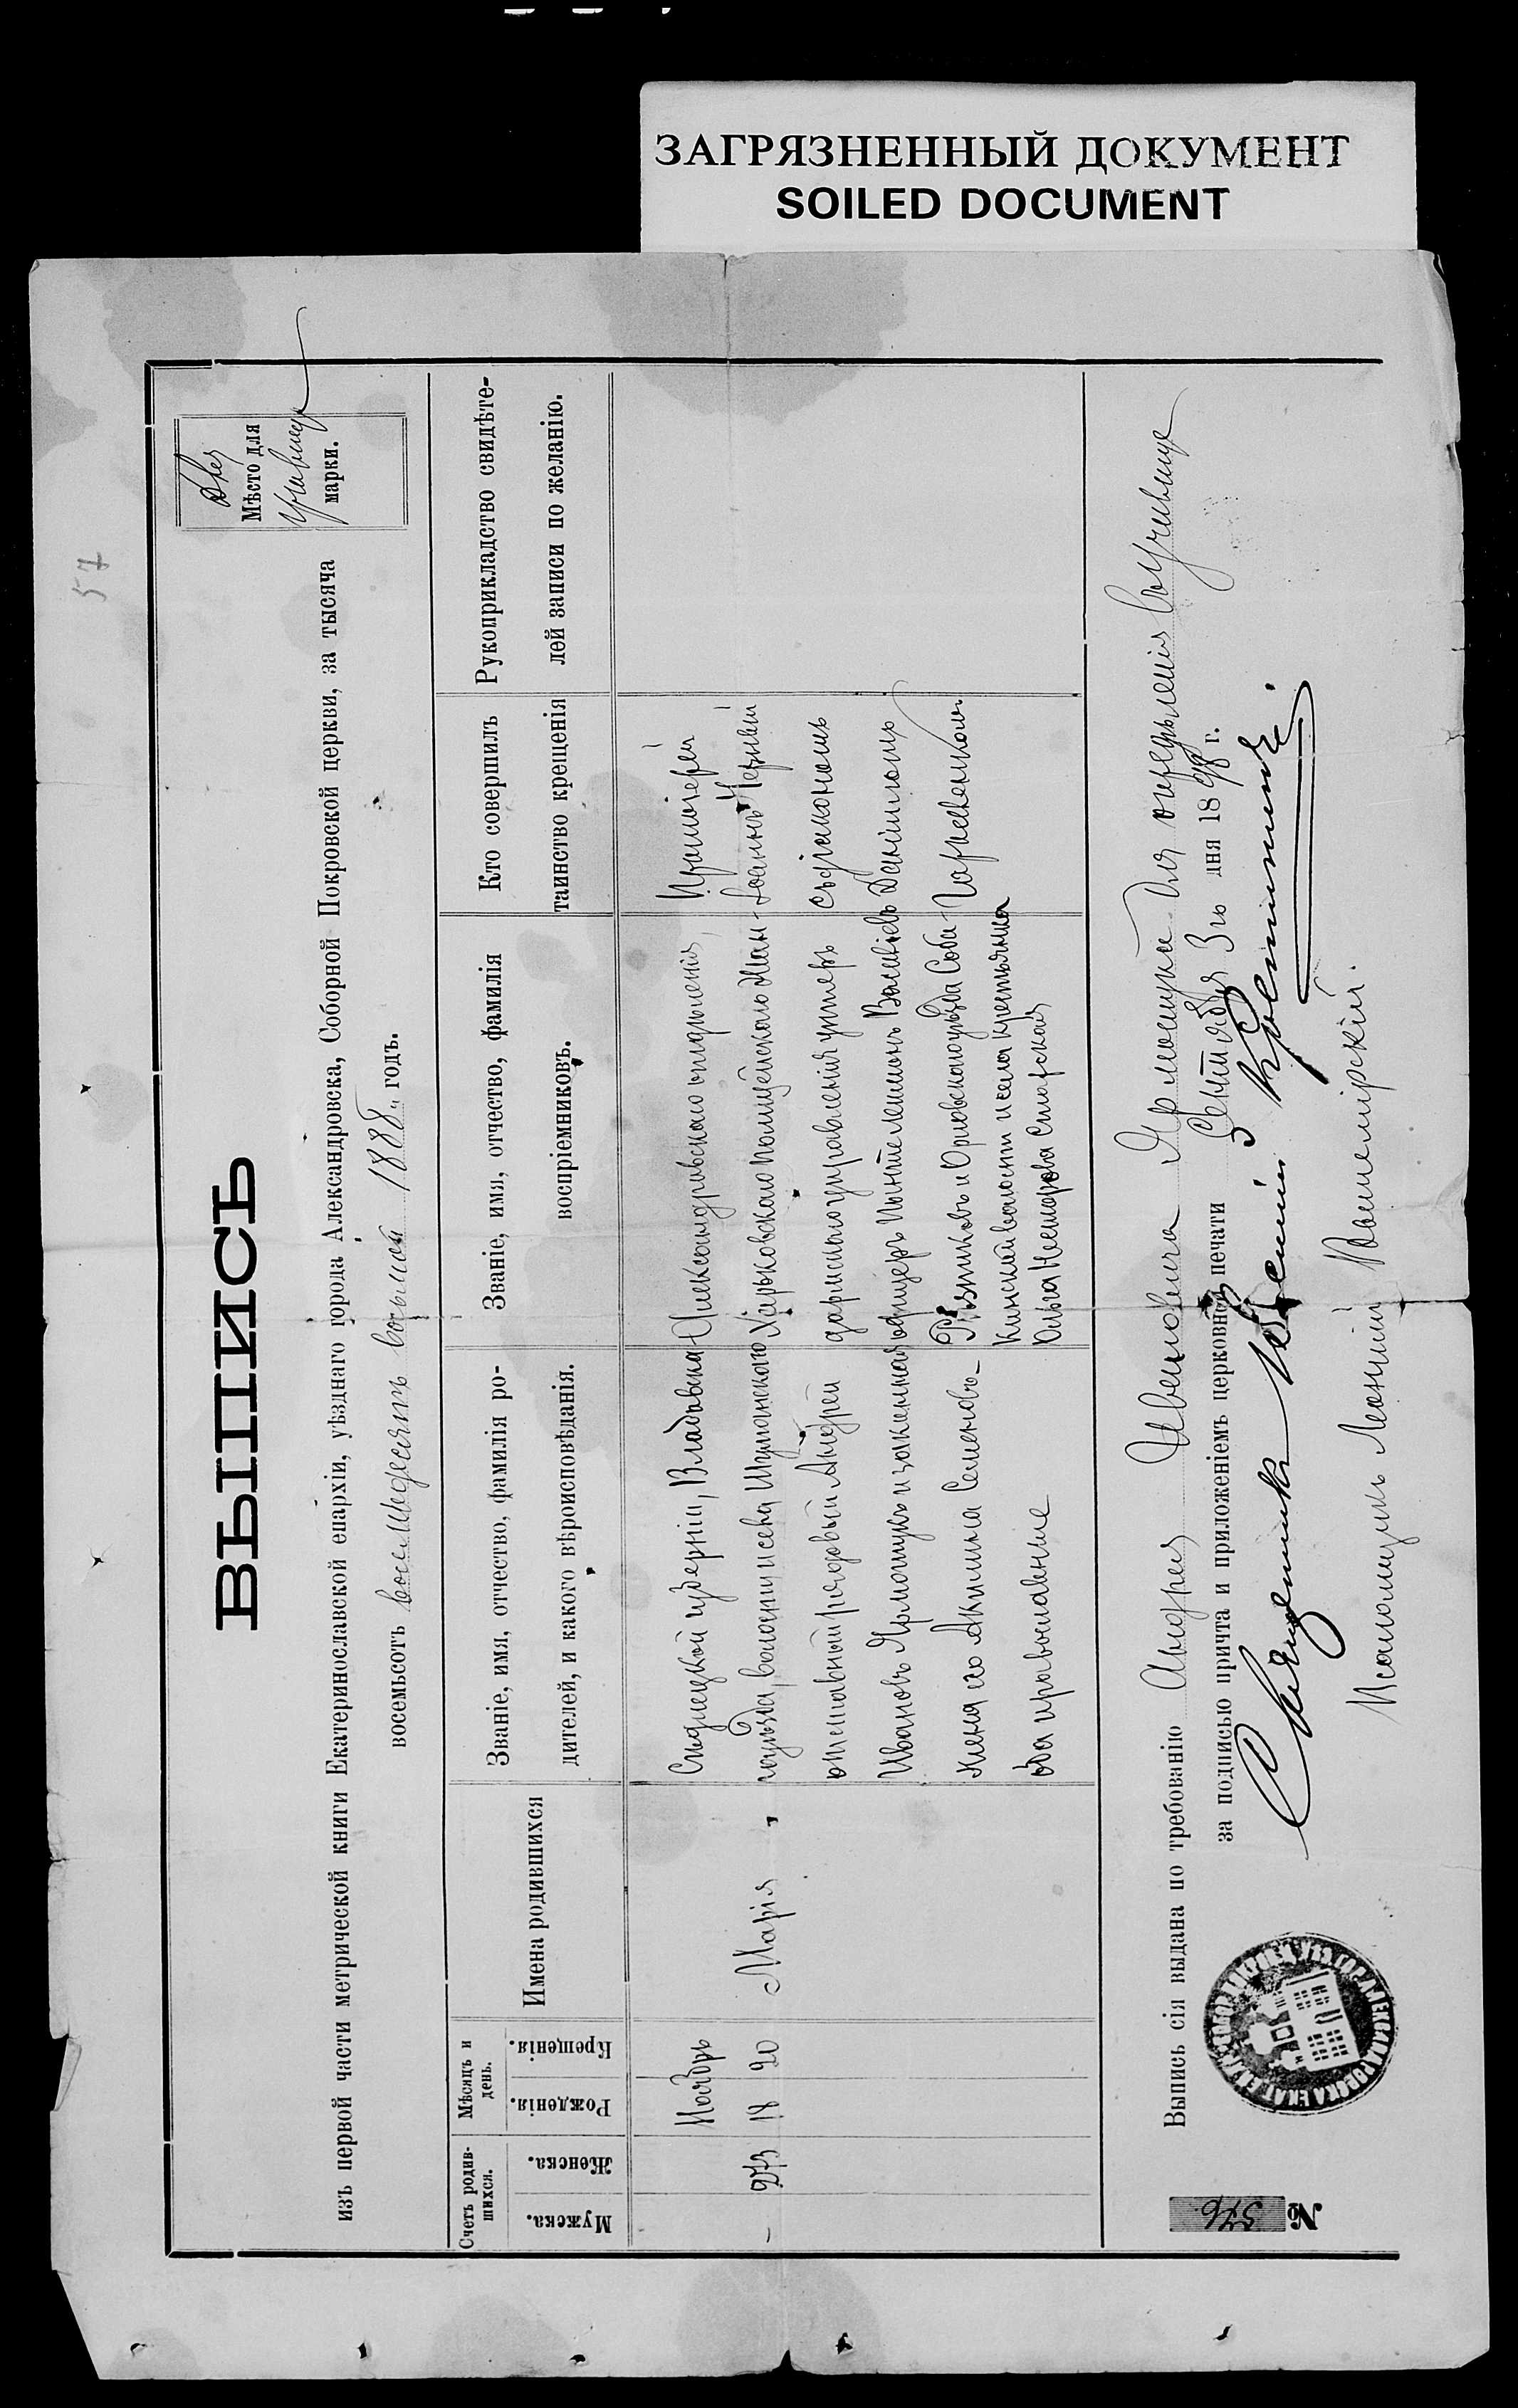 ЗАГРЯЗНЕННЫЙ ДОКУМЕНТ
SOILED DOCUMENT
57
ВЫПИСЬ
Для
Мѣсто для
училища
марки.
изъ первой части метрической книги Екатеринославской епархіи, уѣзднаго города Александровска, Соборной Покровской церкви, за тысяча
восемьсотъ восемьдесятъ восьмой 1888 годъ.
Счетъ родив-
шихся.
Мужска.
Женска.
Мѣсяцъ и
день.
Рожденія.
Крещенія.
Имена родившихся
Званіе, имя, отчество, фамилія ро-
дителей, и какого вѣроисповѣданія.
Званіе, имя, отчество, фамилія
воспріемниковъ.
Кто совершилъ
таинство крещенія
Рукоприкладство свидѣте-
лей записи по желанію.
Ноябрь
- 273 18 20
Марія
Сѣдлецкой губерніи, Владавска-
го уѣзда, волости и села
отставный рядовый Андрей
Ивановъ Ярмощукъ и законная
жена его Акилина Семенова
оба православные
Александровскаго отдѣленія,
Харьковскаго полицейскаго Жан-
дармскаго управленія унтеръ
офицеръ Пантелеимонъ Василіевъ
Рѣзниковъ и Орловскаго уѣзда
волости и села крестьянка
Ольга
Протоіерей
Іоаннъ
съ діакономъ
Даніиломъ
Выпись сія выдана по требованію Андрея Ивановича Ярмощука для опредѣленія въ училище
за подписью причта и приложеніемъ церковной печати Сентября 3го дня 1898 г.
Священникъ
Псаломщикъ
№ 546